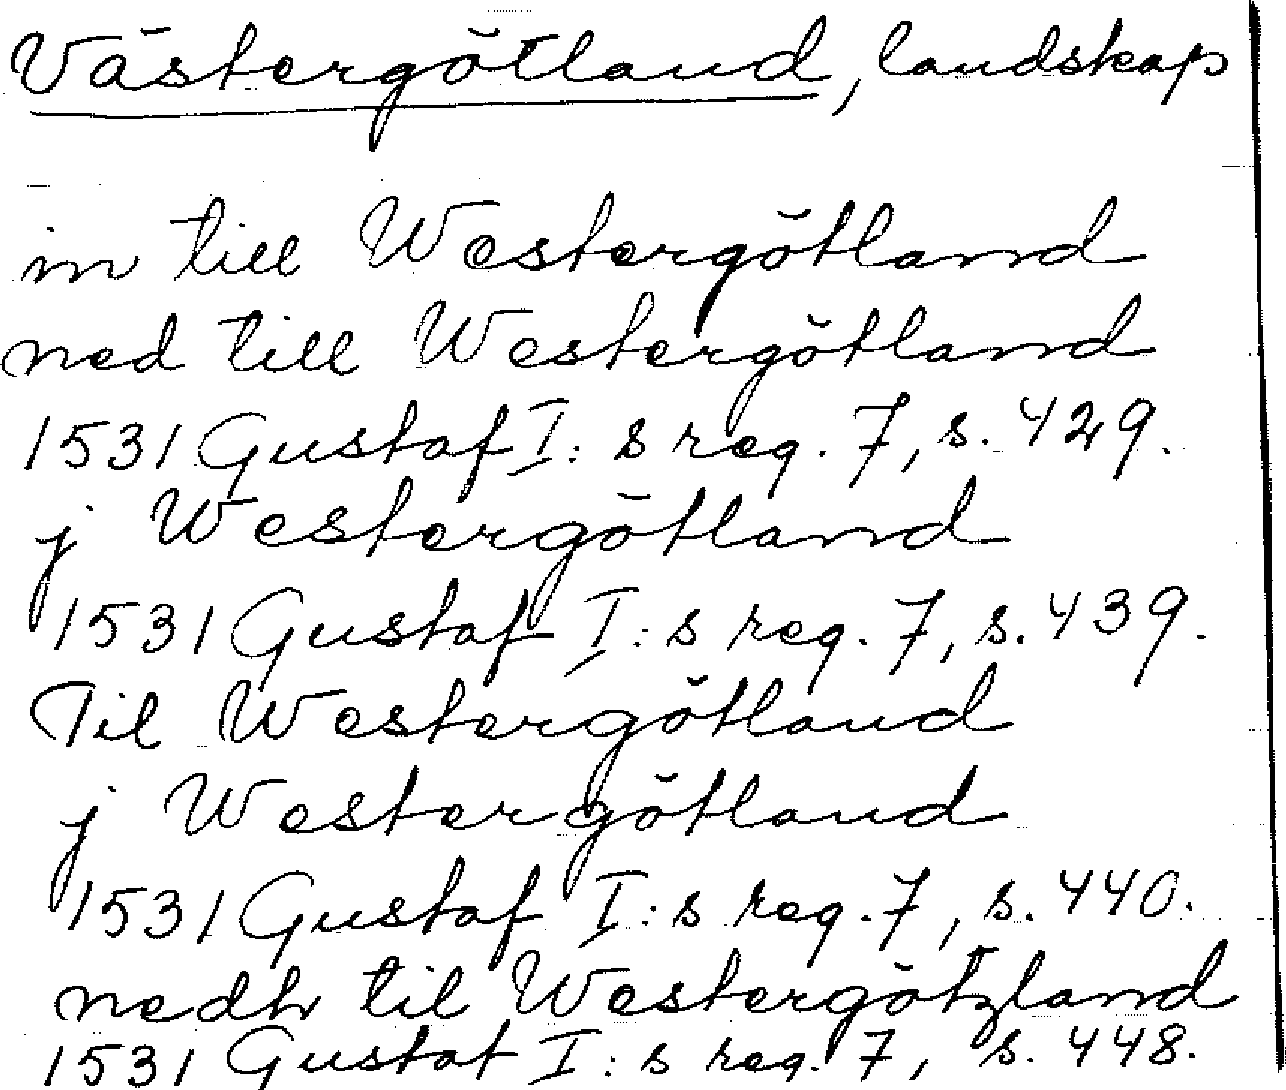 Västergötland, landskap
in till Westergötland
ned till Westergötland
1531 Gustaf I: s reg. 7, s. 429.
j Westergötland
1531 Gustaf I: s reg. 7, s. 439.
Til Westergötland
j Westergötland
1531 Gustaf I: s reg. 7, s. 440.
nedh til Westergötzland
1531 Gustaf I: s reg. 7, s. 448.